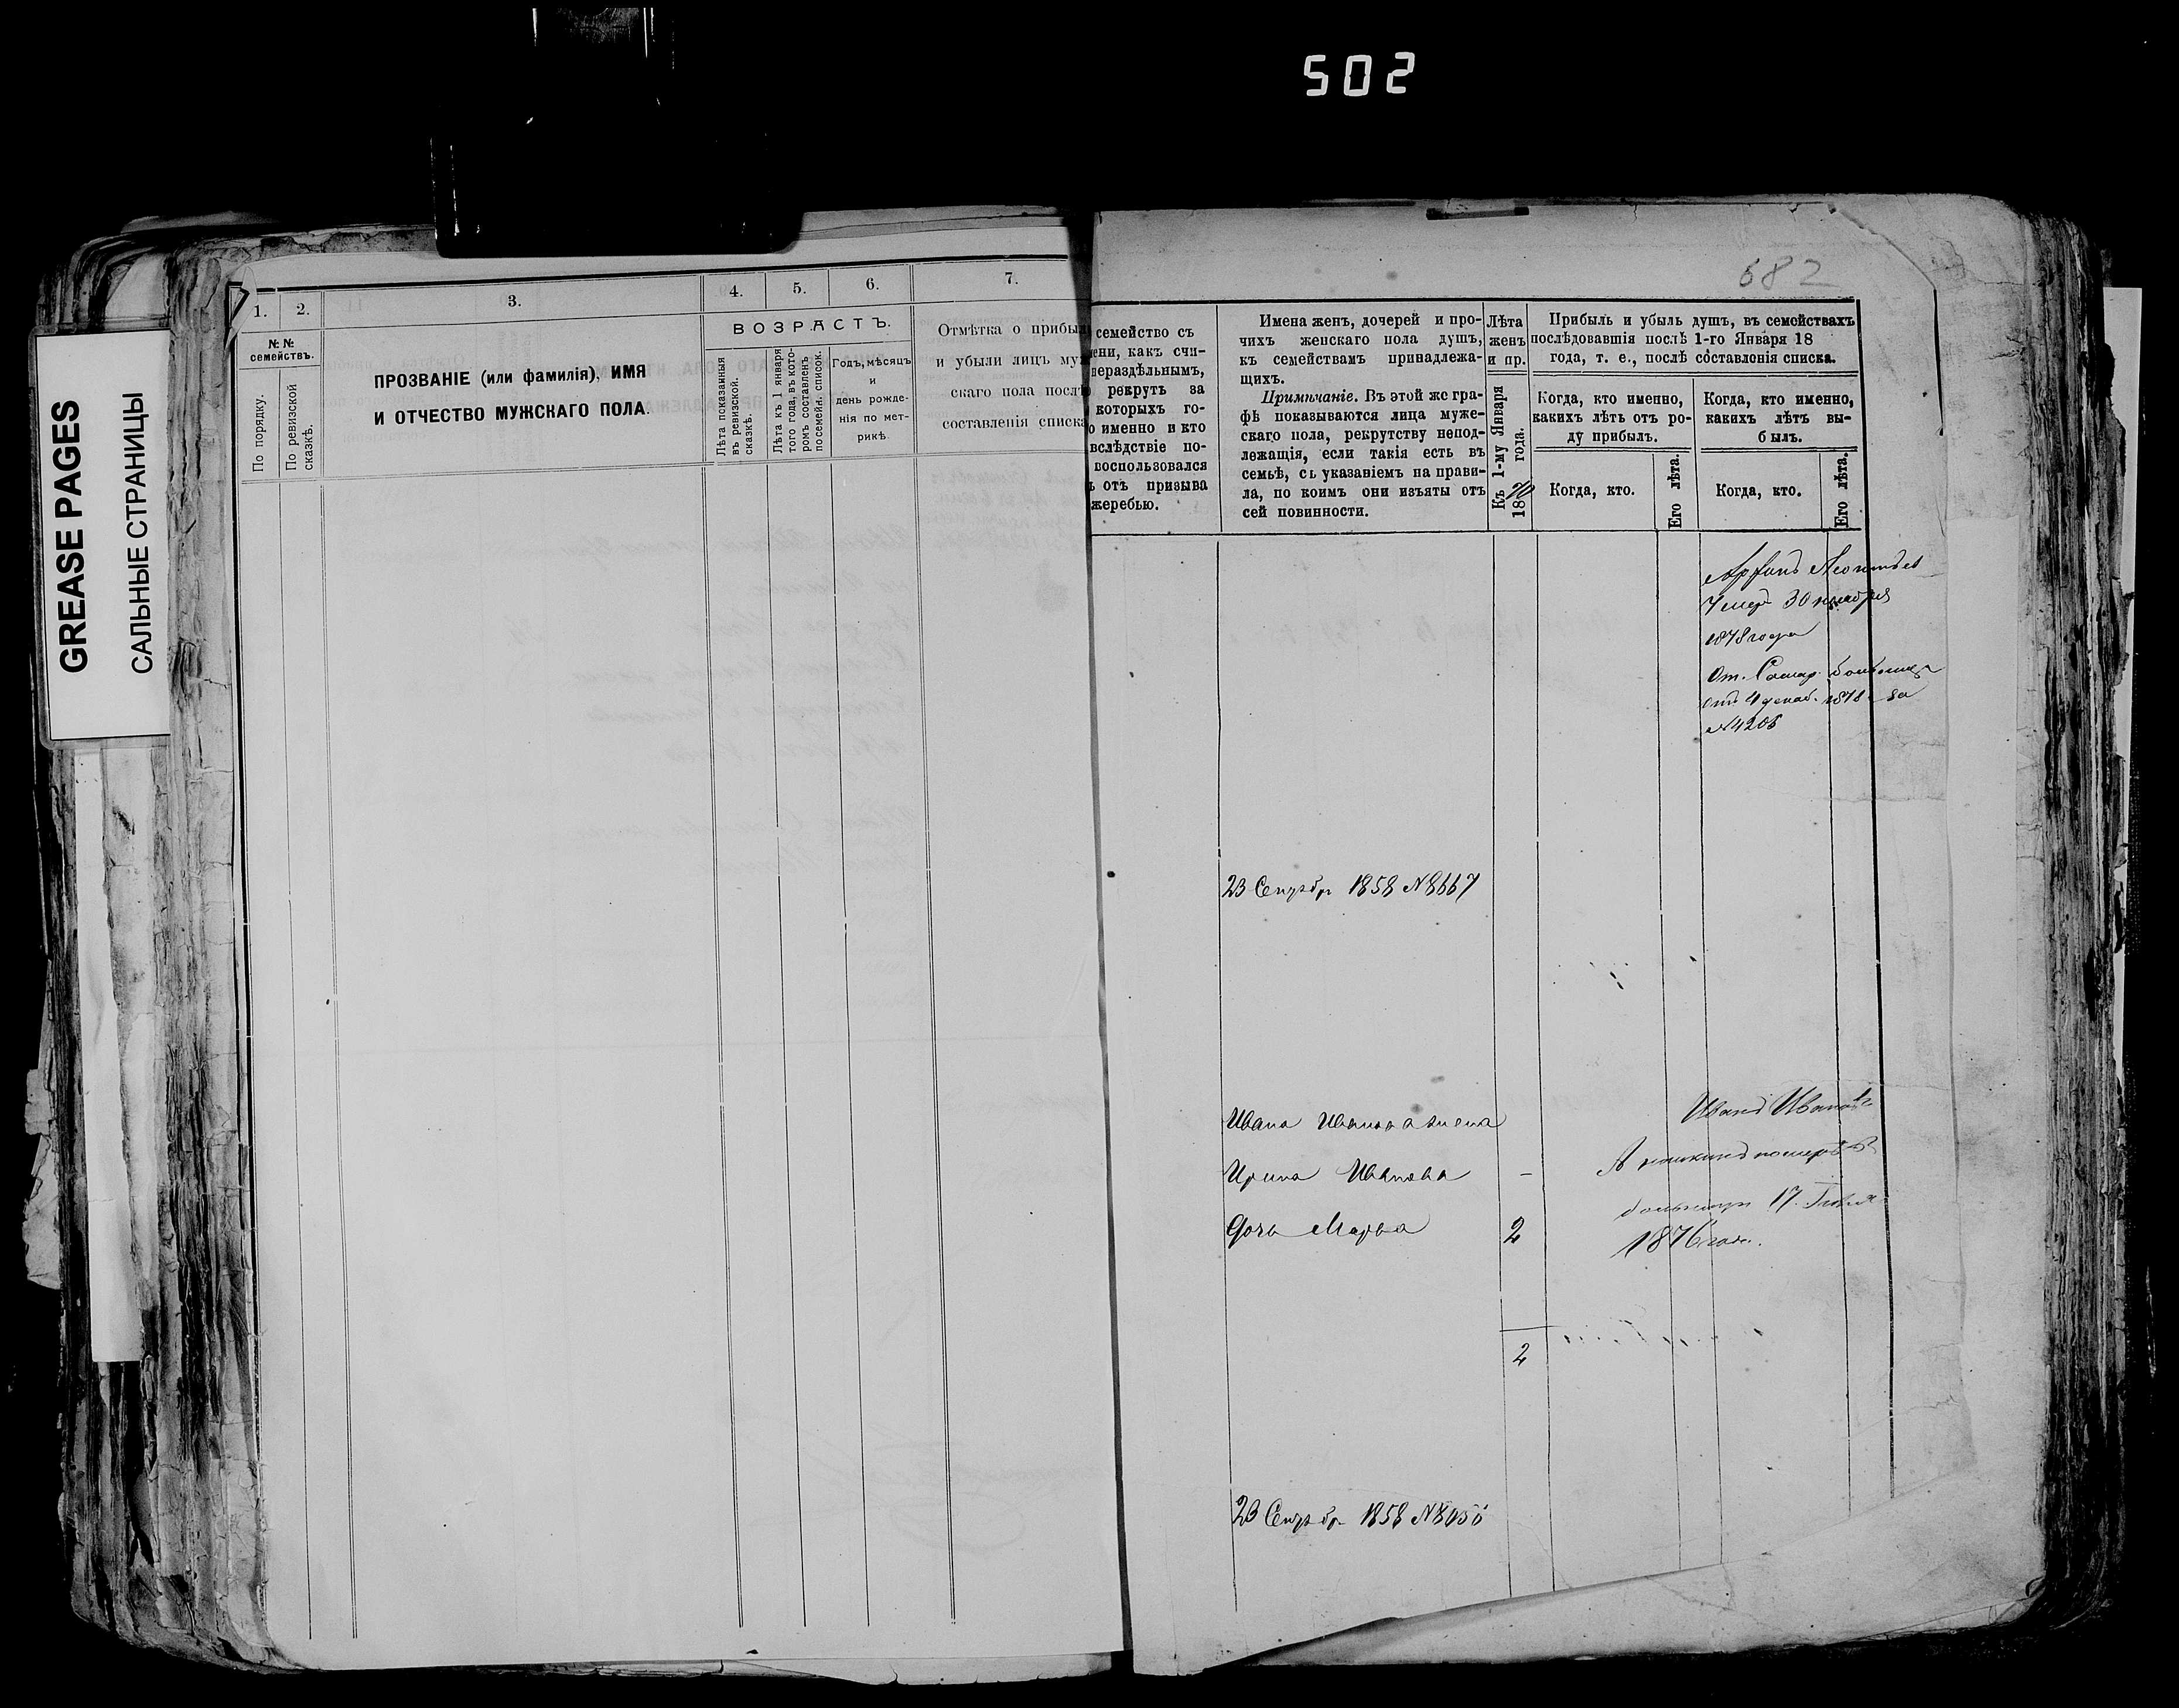 502
GREASE PAGES
САЛЬНЫЕ СТРАНИЦЫ
1.
2.
3.
4.
5.
6.
7.
№№
семействъ.
По порядку.
По ревизской
сказкѣ.
ПРОЗВАНІЕ (или фамилія), ИМЯ
И ОТЧЕСТВО МУЖСКАГО ПОЛА.
ВОЗРАСТЪ.
Лѣта показанныя
въ ревизской.
сказкѣ.
Лѣта къ 1 января
того года, въ кото-
ромъ составленъ
посемейн. список.
Годъ, мѣсяцъ
и
день рожде-
нія по мет-
рикѣ.
Отмѣтка о прибыл
и убыли лицъ муж
скаго пола послѣ
составленія списка
682
семейство съ
ени, какъ счи-
нераздѣльнымъ,
рекрутъ за
которыхъ го-
о именно и кто
вслѣдствіе по-
воспользовался
ь отъ призыва
жеребью.
Имена женъ, дочерей и про-
чихъ женскаго пола душъ,
къ семействамъ принадлежа-
щихъ.
Примѣчаніе. Въ этой же гра-
фѣ показываются лица муже-
скаго пола, рекрутству непод-
лежащія, если такія есть въ
семьѣ, съ указаніемъ на прави-
ла, по коимъ они изъяты отъ
сей повинности.
Лѣта
женъ
и пр.
Къ 1-му Января
1870 года.
Прибыль и убыль душъ, въ семействахъ
послѣдовавшія послѣ 1-го Января 18
года, т. е., послѣ составленія списка.
Когда, кто именно,
какихъ лѣтъ отъ ро-
ду прибылъ.
Когда, кто именно,
какихъ лѣтъ вы-
былъ.
Когда, кто.
Его лѣта.
Когда, кто.
Его лѣта.
30 ноября
1878 года
От. Самар. больница
отъ 4 декаб. 1878 за
№4206
23 Сентябр 1858 №8667
Ивана Иванова жена
Ирина Иванова –
дочь Марья 2
Иванъ Иванов
померъ в
больницѣ 17 Іюля
1876 года.
2
23 Сентябр 1858 №8650